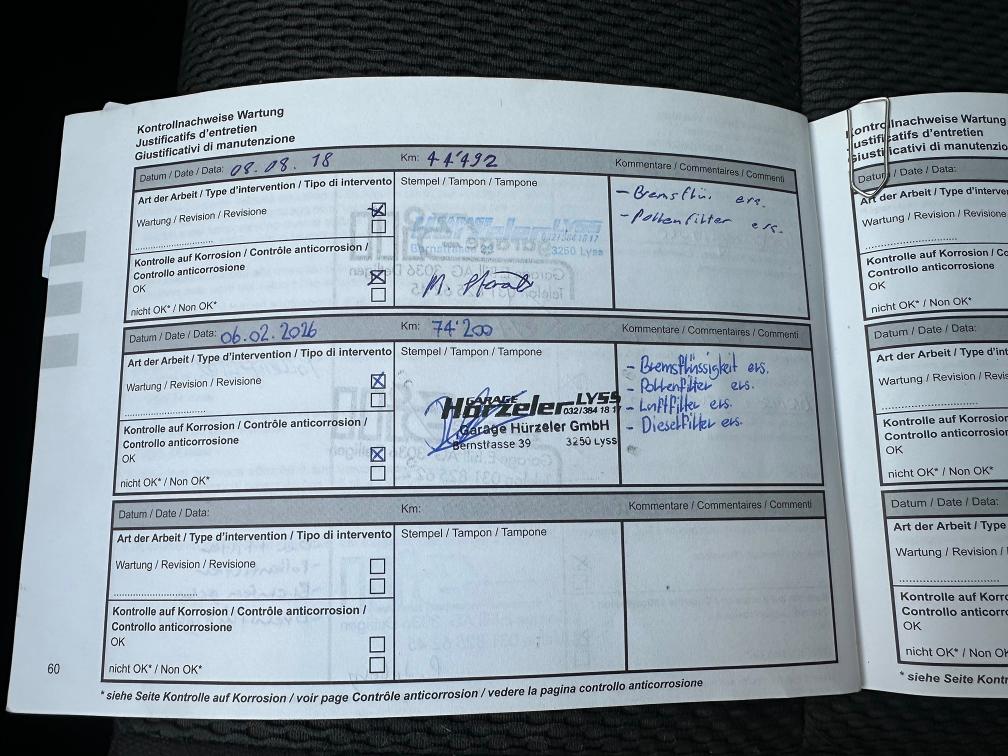 Kontrollnachweise Wartung
Justificatifs d'entretien
Giustificativi di manutenzione
Datum / Date / Data: 08.08. 18 Km: 44'492 Kommentare / Commentaires / Commenti
Art der Arbeit / Type d'intervention / Tipo di intervento Stempel / Tampon / Tampone
Wartung / Revision / Revisione
- Bremsflü. ers.
- Pollenfilter ers.
Kontrolle auf Korrosion / Contrôle anticorrosion /
Controllo anticorrosione
OK
nicht OK* / Non OK*
GARAGE Hürzeler LYSS
032/384 18 17
Bernstrasse 39 3250 Lyss
Datum / Date / Data: 06.02.2026 Km: 74'200 Kommentare / Commentaires / Commenti
Art der Arbeit / Type d'intervention / Tipo di intervento Stempel / Tampon / Tampone
Wartung / Revision / Revisione
Kontrolle auf Korrosion / Contrôle anticorrosion /
Controllo anticorrosione
OK
nicht OK* / Non OK*
GARAGE Hürzeler LYSS
032/384 18 17
Garage Hürzeler GmbH
Bernstrasse 39 3250 Lyss
- Bremsflüssigkeit ers.
- Pollenfilter ers.
- Luftfilter ers.
- Dieselfilter ers.
Datum / Date / Data: Km: Kommentare / Commentaires / Commenti
Art der Arbeit / Type d'intervention / Tipo di intervento Stempel / Tampon / Tampone
Wartung / Revision / Revisione
Kontrolle auf Korrosion / Contrôle anticorrosion /
Controllo anticorrosione
OK
nicht OK* / Non OK*
60
* siehe Seite Kontrolle auf Korrosion / voir page Contrôle anticorrosion / vedere la pagina controllo anticorrosione
Kontrollnachweise Wartung
Justificatifs d'entretien
Giustificativi di
Datum / Date / Data:
Art der Arbeit / Type
Wartung / Revision
Kontrolle auf
Controllo anticorrosione
OK
nicht OK* / Non OK*
Datum / Date / Data:
Art der Arbeit / Type
Wartung / Revision
Kontrolle auf
Controllo
OK
nicht OK* / Non OK*
Datum / Date / Data:
Art der Arbeit / Type
Wartung / Revision
Kontrolle auf
Controllo
OK
nicht OK* / Non
* siehe Seite